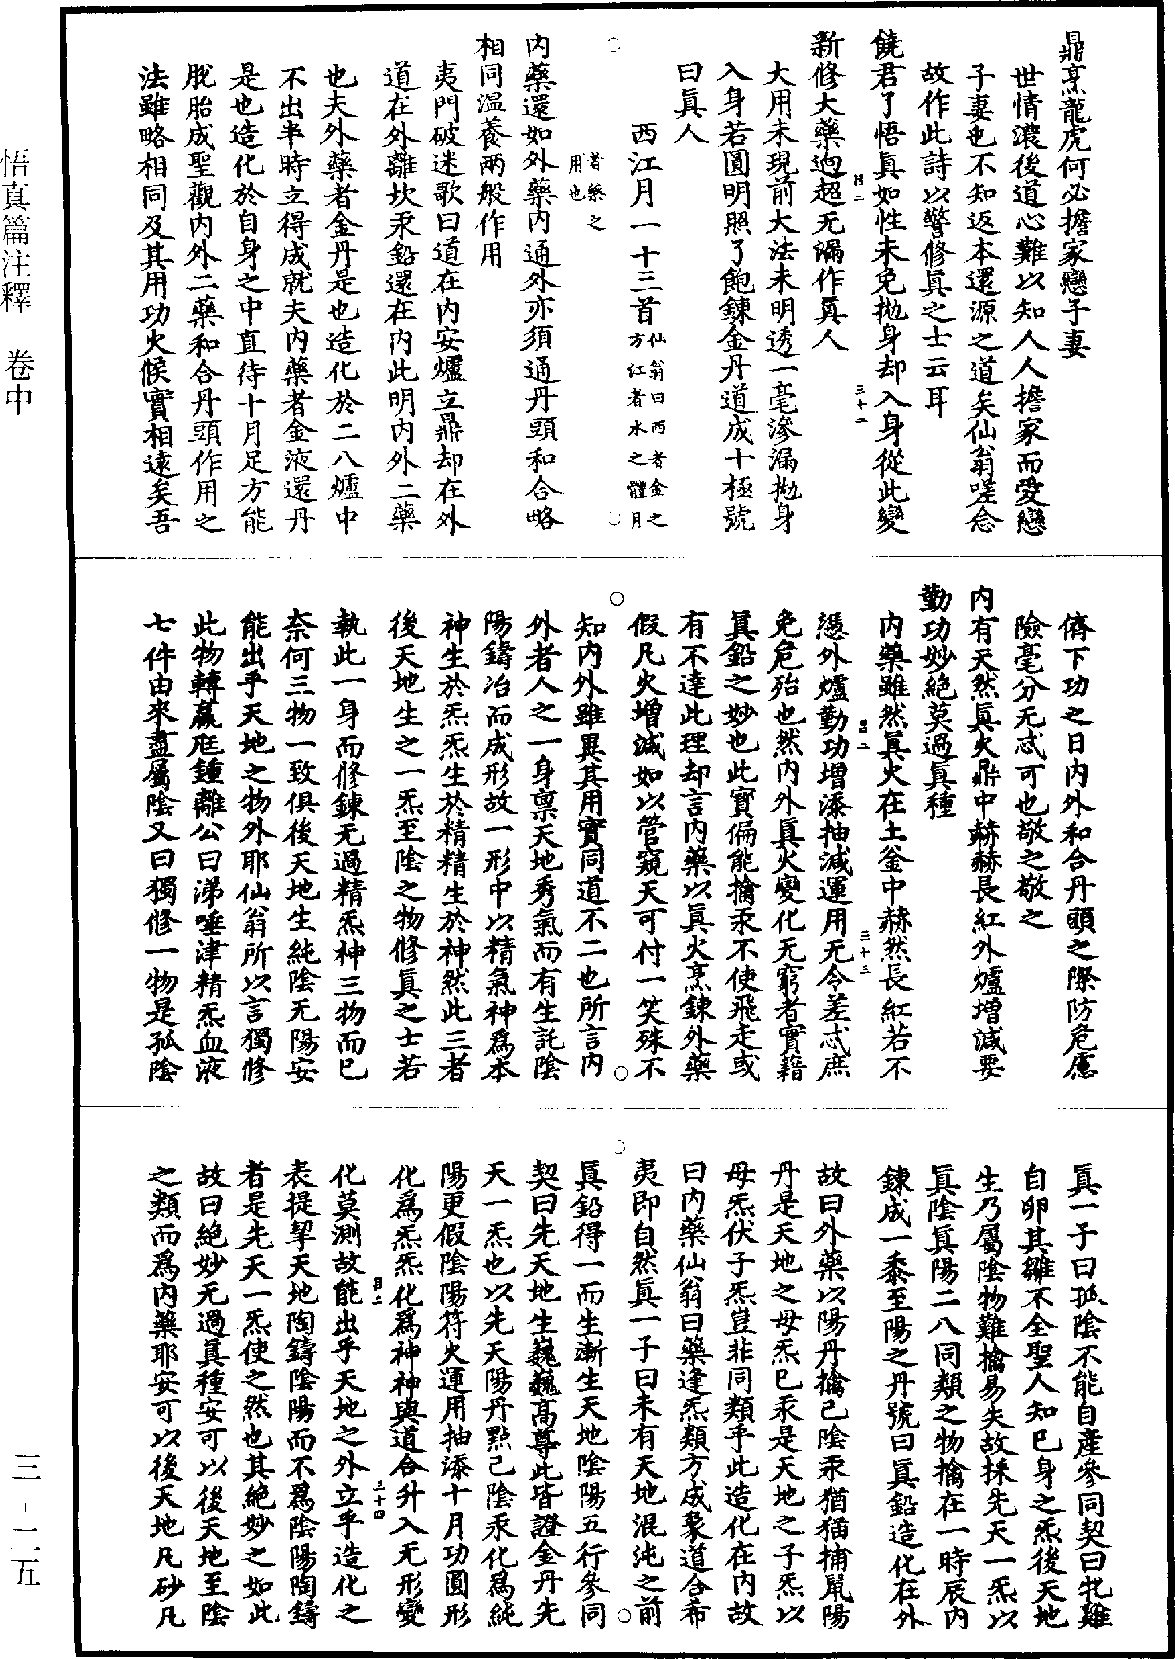 鼎烹龍虎何必擔家戀子妻
世情濃後道心難以知人人擔家而愛戀
子妻也不知返本還源之道矣仙翁嗟念
故作此詩以警修眞之士云耳
饒君了悟眞如性未免拋身却入身從此變
新修大藥逈超无漏作眞人
大用未現前大法未明透一毫滲漏拋身
入身若圓明照了飽鍊金丹道成十極號
曰眞人
西江月一十三首仙翁曰西者金之方江者水之體月
者藥之用也
内藥還如外藥内通外亦須通丹頭和合略
相同溫養兩般作用
夷門破迷歌曰道在内安爐立鼎却在外
道在外離坎汞鉛還在内此明内外二藥
也夫外藥者金丹是也造化於二八爐中
不出半時立得成就夫内藥者金液還丹
是也造化於自身之中直待十月足方能
脫胎成聖觀内外二藥和合丹頭作用之
法雖略相同及其用功火候實相遠矣吾
儕下功之日内外和合丹頭之際防危慮
險毫分无忒可也敬之敬之
内有天然眞火鼎中赫赫長紅外爐增減要
勤功妙絕莫過眞種
内藥雖然眞火在土釜中赫然長紅若不
憑外爐勤功增添抽減運用无令差忒庶
免危殆也然内外眞火變化无窮者實藉
眞鉛之妙也此寶偏能擒汞不使飛走或
有不達此理却言内藥以眞火烹鍊外藥
假凡火增減如以管窺天可付一笑殊不
知内外雖異其用實同道不二也所言内
外者人之一身禀天地秀氣而有生託陰
陽鑄冶而成形故一形中以精氣神爲本
神生於炁炁生於精精生於神然此三者
後天地生之一炁至陰之物修眞之士若
執此一身而修鍊无過精炁神三物而已
奈何三物一致俱後天地生純陰无陽安
能出乎天地之物外耶仙翁所以言獨修
此物轉羸尫鍾離公曰涕唾津精炁血液
七件由來盡屬陰又曰獨修一物是孤陰
眞一子曰孤陰不能自產參同契曰牝雞
自卵其雛不全聖人知已身之炁後天地
生乃屬陰物難擒易失故採先天一炁以
眞陰眞陽二八同類之物擒在一時辰内
鍊成一黍至陽之丹號曰眞鉛造化在外
故曰外藥以陽丹擒己陰汞猶猫捕鼠陽
丹是天地之母炁已汞是天地之子炁以
母炁伏子炁豈非同類乎此造化在内故
曰内藥仙翁曰藥逢炁類方成象道合希
夷即自然眞一子曰未有天地混沌之前
眞鉛得一而生漸生天地陰陽五行參同
契曰先天地生巍巍高尊此皆證金丹先
天一炁也以先天陽丹點己陰汞化爲純
陽更假陰陽符火運用抽添十月功圓形
化爲炁炁化爲神神與道合升入无形變
化莫測故能出乎天地之外立乎造化之
表提挈天地陶鑄陰陽而不爲陰陽陶鑄
者是先天一炁使之然也其絕妙之如此
故曰絕妙无過眞種安可以後天地至陰
之類而爲内藥耶安可以後天地凡砂凡
悟真篇注釋　卷中
三-一一五